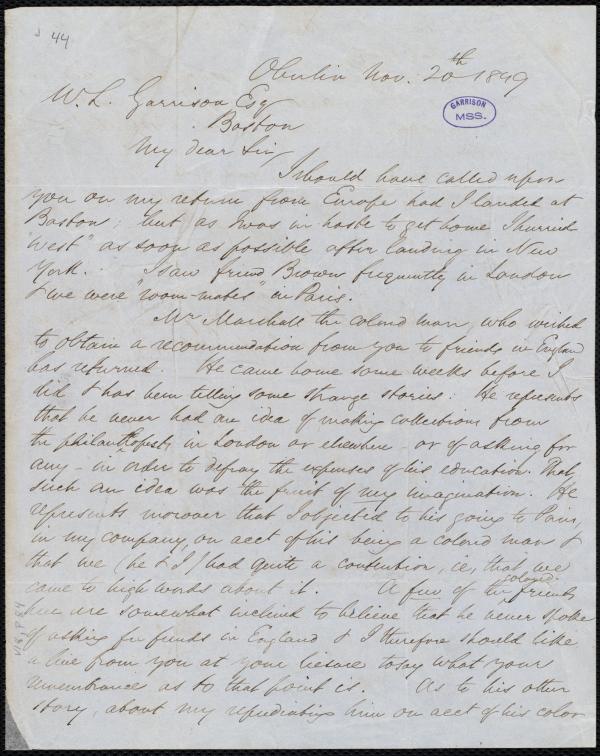 44
Oberlin Nov. 20th 1849
W. L. Garrison Esq
GARRISON
MSS.
Boston
My dear Sir
I should have called upon
you on my return from Europe had I landed at
Boston; but as I was in haste to get home I hurried
"West" as soon as possible after landing in New
York. I saw friend Brown frequently in London
& we were "room-mates" in Paris.
Mr Marshall the colored man, who wished
to obtain a recommendation from you to friends in England
has returned. He came home some weeks before I
did & has been telling some strange stories: He represents
that he never had an idea of making collections from
the philanthropists in London or elsewhere - or of asking for
any - in order to defray the expenses of his education. That
such an idea was the fruit of my imagination. He
represents moreover that I objected to his going to Paris,
in my company, on acct of his being a colored man &
that we (he & I) had quite a contention, ie, that we
came to high words about it. A few of the colored friends
here are somewhat inclined to believe that he never spoke
of asking for funds in England & I therefore should like
a line from you at your liesure to say what your
remembrance as to that point is. As to his other
story, about my repudiating him on acct of his color
V.18, P.84